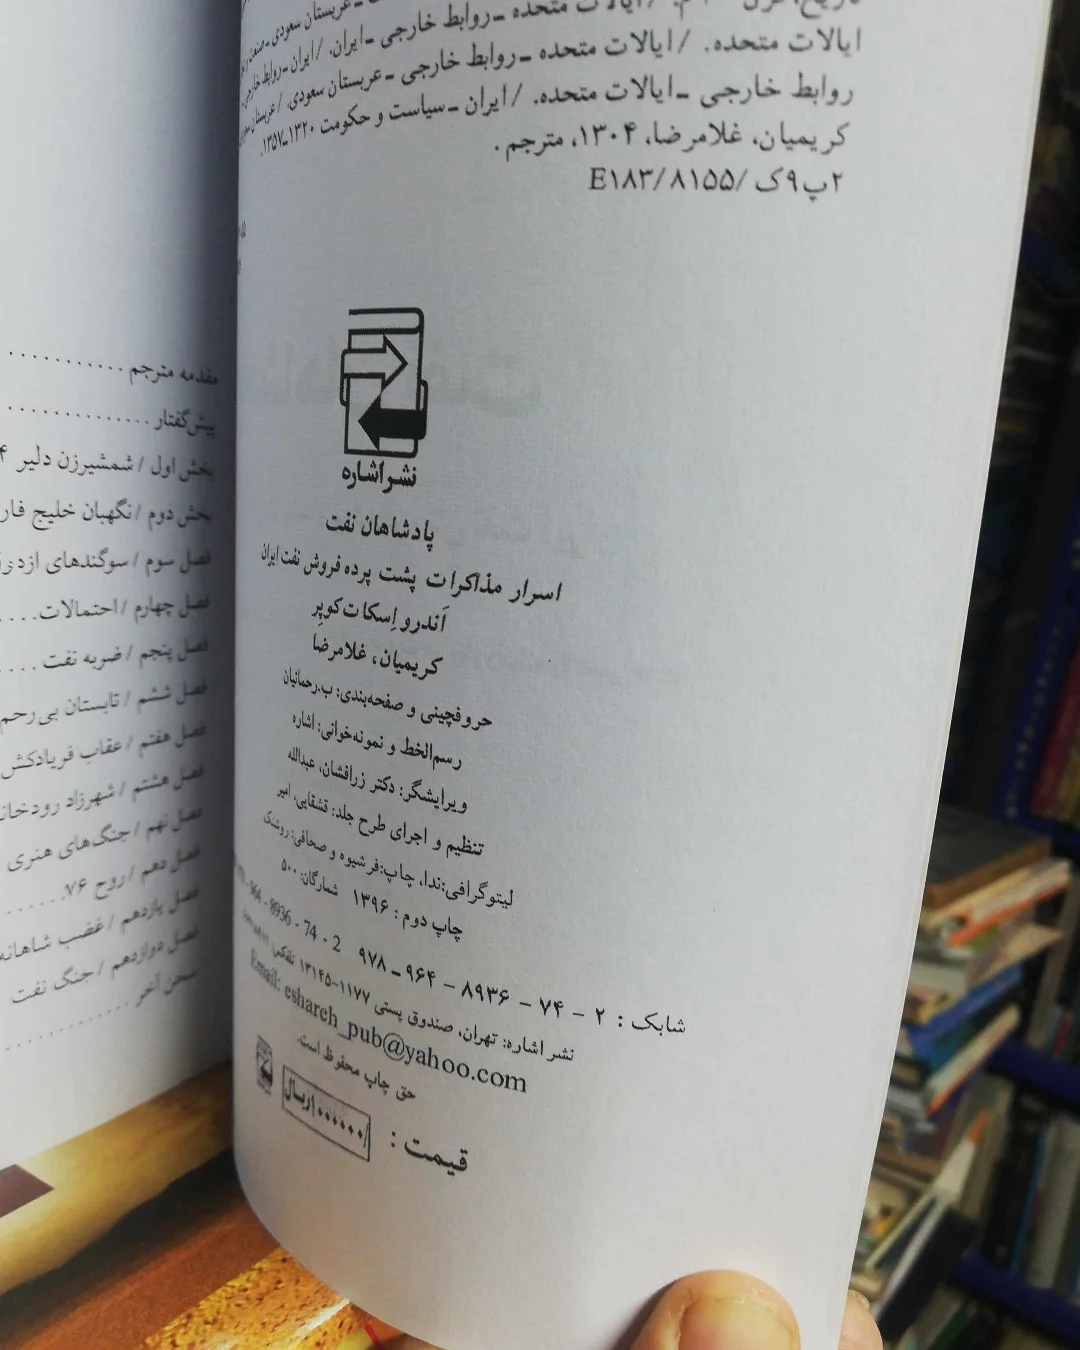 ایالات متحده ـ روابط خارجی ـ ایران. / ایران ـ روابط خارجی ـ
ایالات متحده. / ایالات متحده ـ روابط خارجی ـ عربستان سعودی. / عربستان
روابط خارجی ـ ایالات متحده. / ایران ـ سیاست و حکومت ۱۳۲۰ـ۱۳۵۷.
کریمیان، غلامرضا، ۱۳۰۴، مترجم.
۲پ۹ک /E۱۸۳/۸۱۵۵
نشر اشاره
پادشاهان نفت
اسرار مذاکرات پشت پرده فروش نفت ایران
آندرو اِسکات کوپِر
کریمیان، غلامرضا
حروفچینی و صفحه‌بندی: ب.رحمانیان
رسم‌الخط و نمونه‌خوانی: اشاره
ویرایشگر: دکتر زرافشان، عبدالله
تنظیم و اجرای طرح جلد: قشقایی، امیر
لیتوگرافی:ندا، چاپ:فرشیوه و صحافی: روشنک
چاپ دوم : ۱۳۹۶ شمارگان: ۵۰۰
شابک : ۲ - ۷۴ - ۸۹۳۶ - ۹۶۴ ـ ۹۷۸ 2 - 74 - 8936 - 964 -
نشر اشاره: تهران، صندوق پستی ۱۱۷۷-۱۳۱۴۵ تلفکس:
Email: eshareh_pub@yahoo.com
حق چاپ محفوظ است.
قیمت : ریال
مقدمه مترجم
پیش‌گفتار
بخش اول / شمشیرزن دلیر
بخش دوم / نگهبان خلیج
فصل سوم / سوگندهای
فصل چهارم / احتمالات
فصل پنجم / ضربه نفت
فصل ششم / تابستان بی‌رحم
فصل هفتم / عقاب فریادکش
فصل هشتم / شهرزاد
فصل نهم / جنگ‌های هنری
فصل دهم / روح ۷۶
فصل یازدهم / غضب شاهانه
فصل دوازدهم / جنگ نفت
سخن آخر